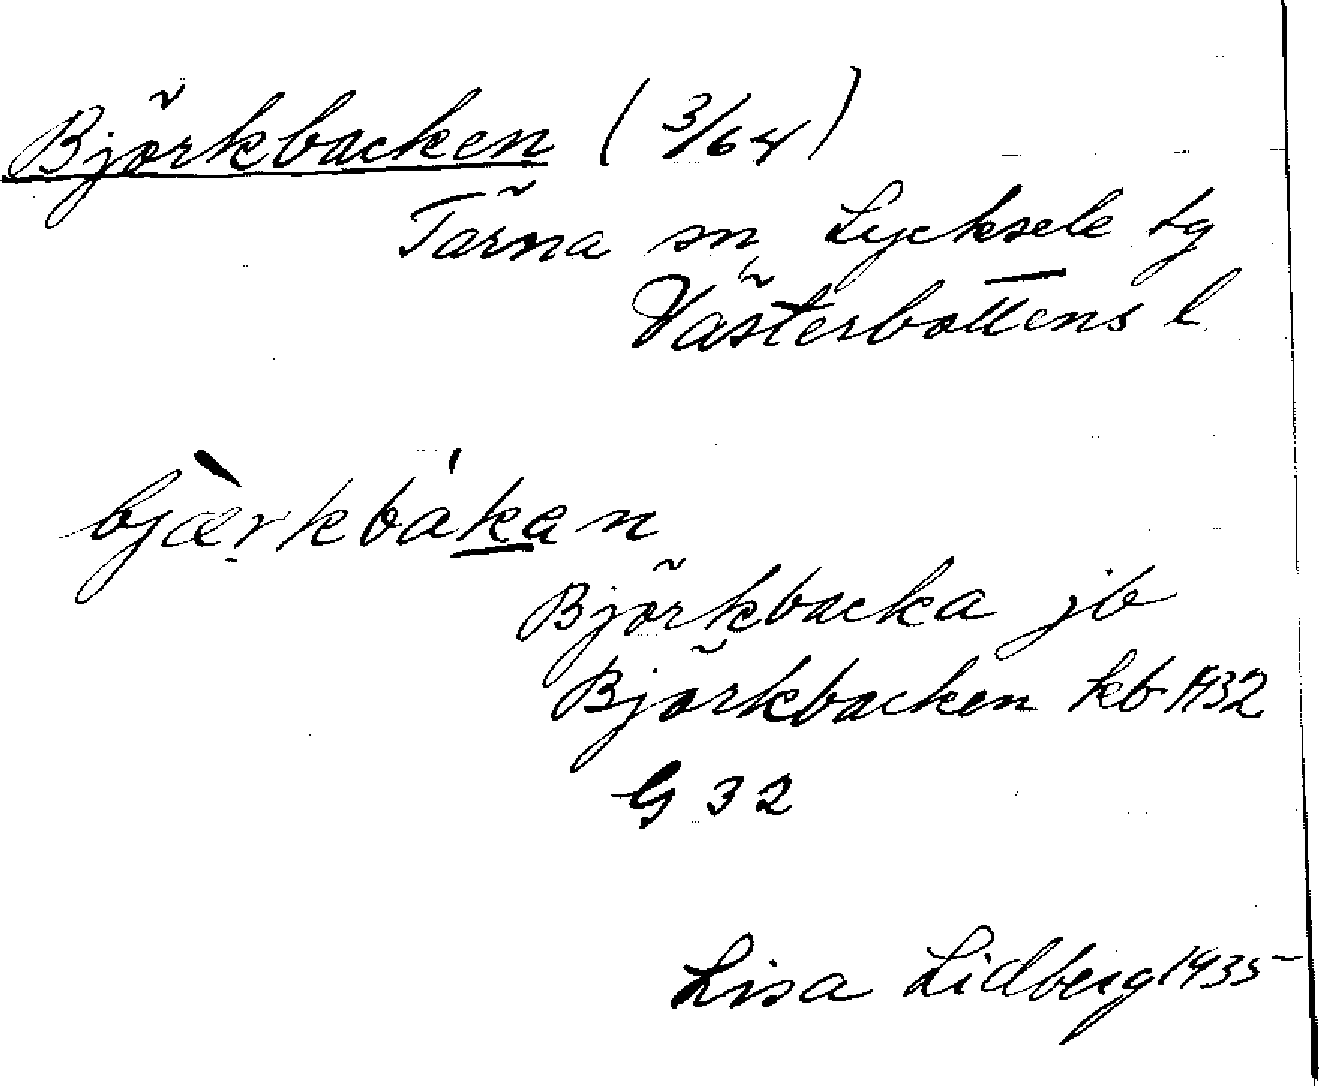 Björkbacken (3/64)
Tärna sn, Lycksele tg
Västerbottens l
bjærkbákan
Björkbacka jb
Björkbacken kb 1932
G 32
Lisa Lidberg 1935